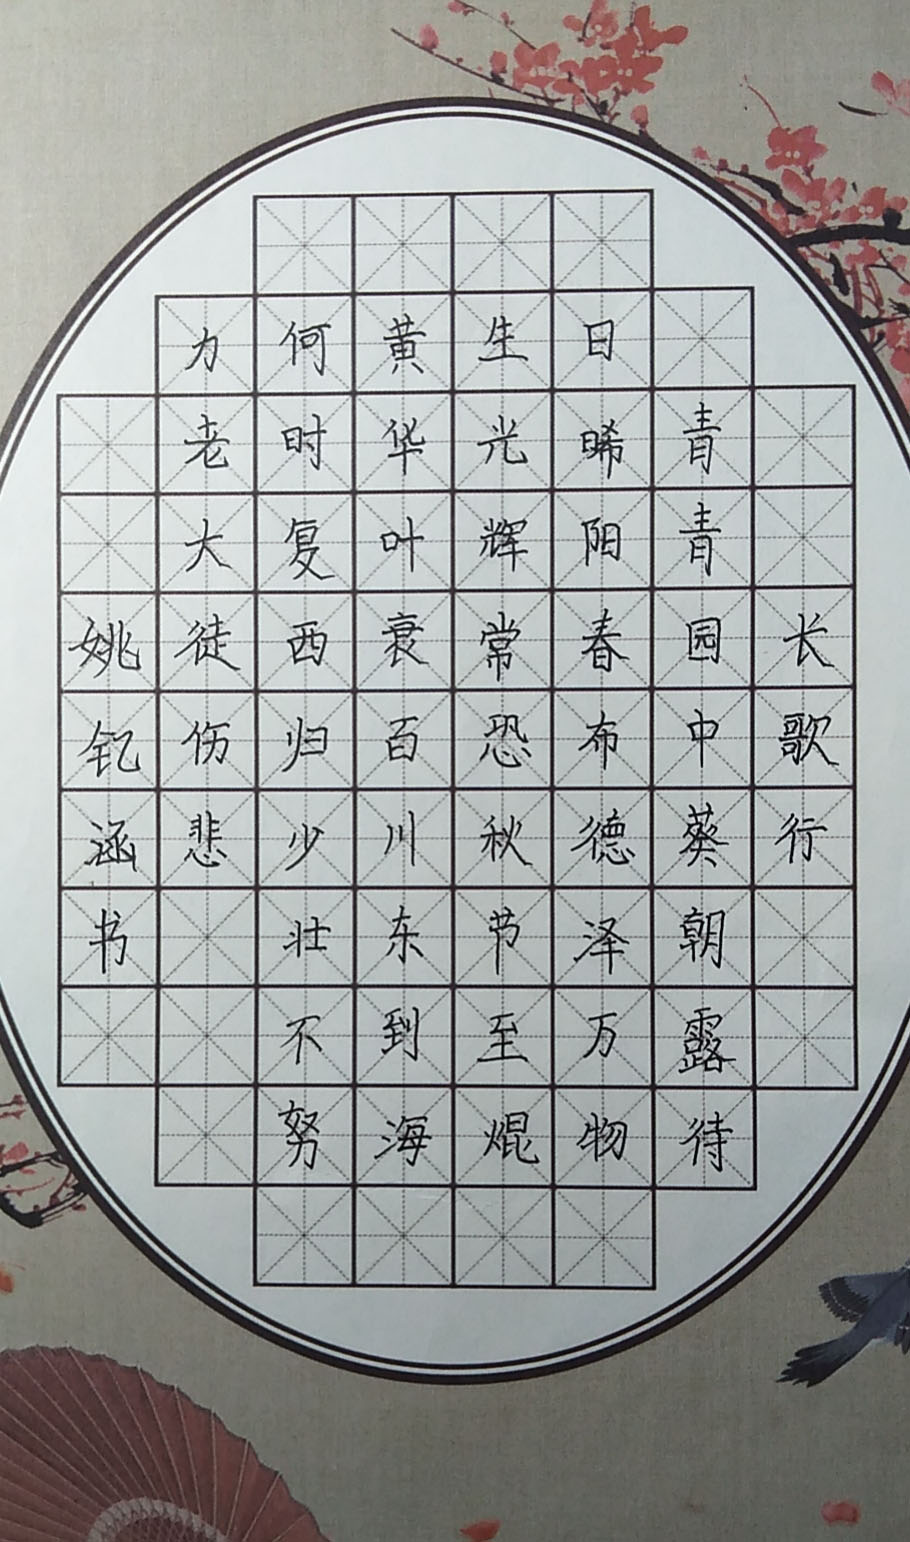 长歌行
青青园中葵朝露待
日晞阳春布德泽万物
生光辉常恐秋节至焜
黄华叶衰百川东到海
何时复西归少壮不努
力老大徒伤悲
姚钇涵书